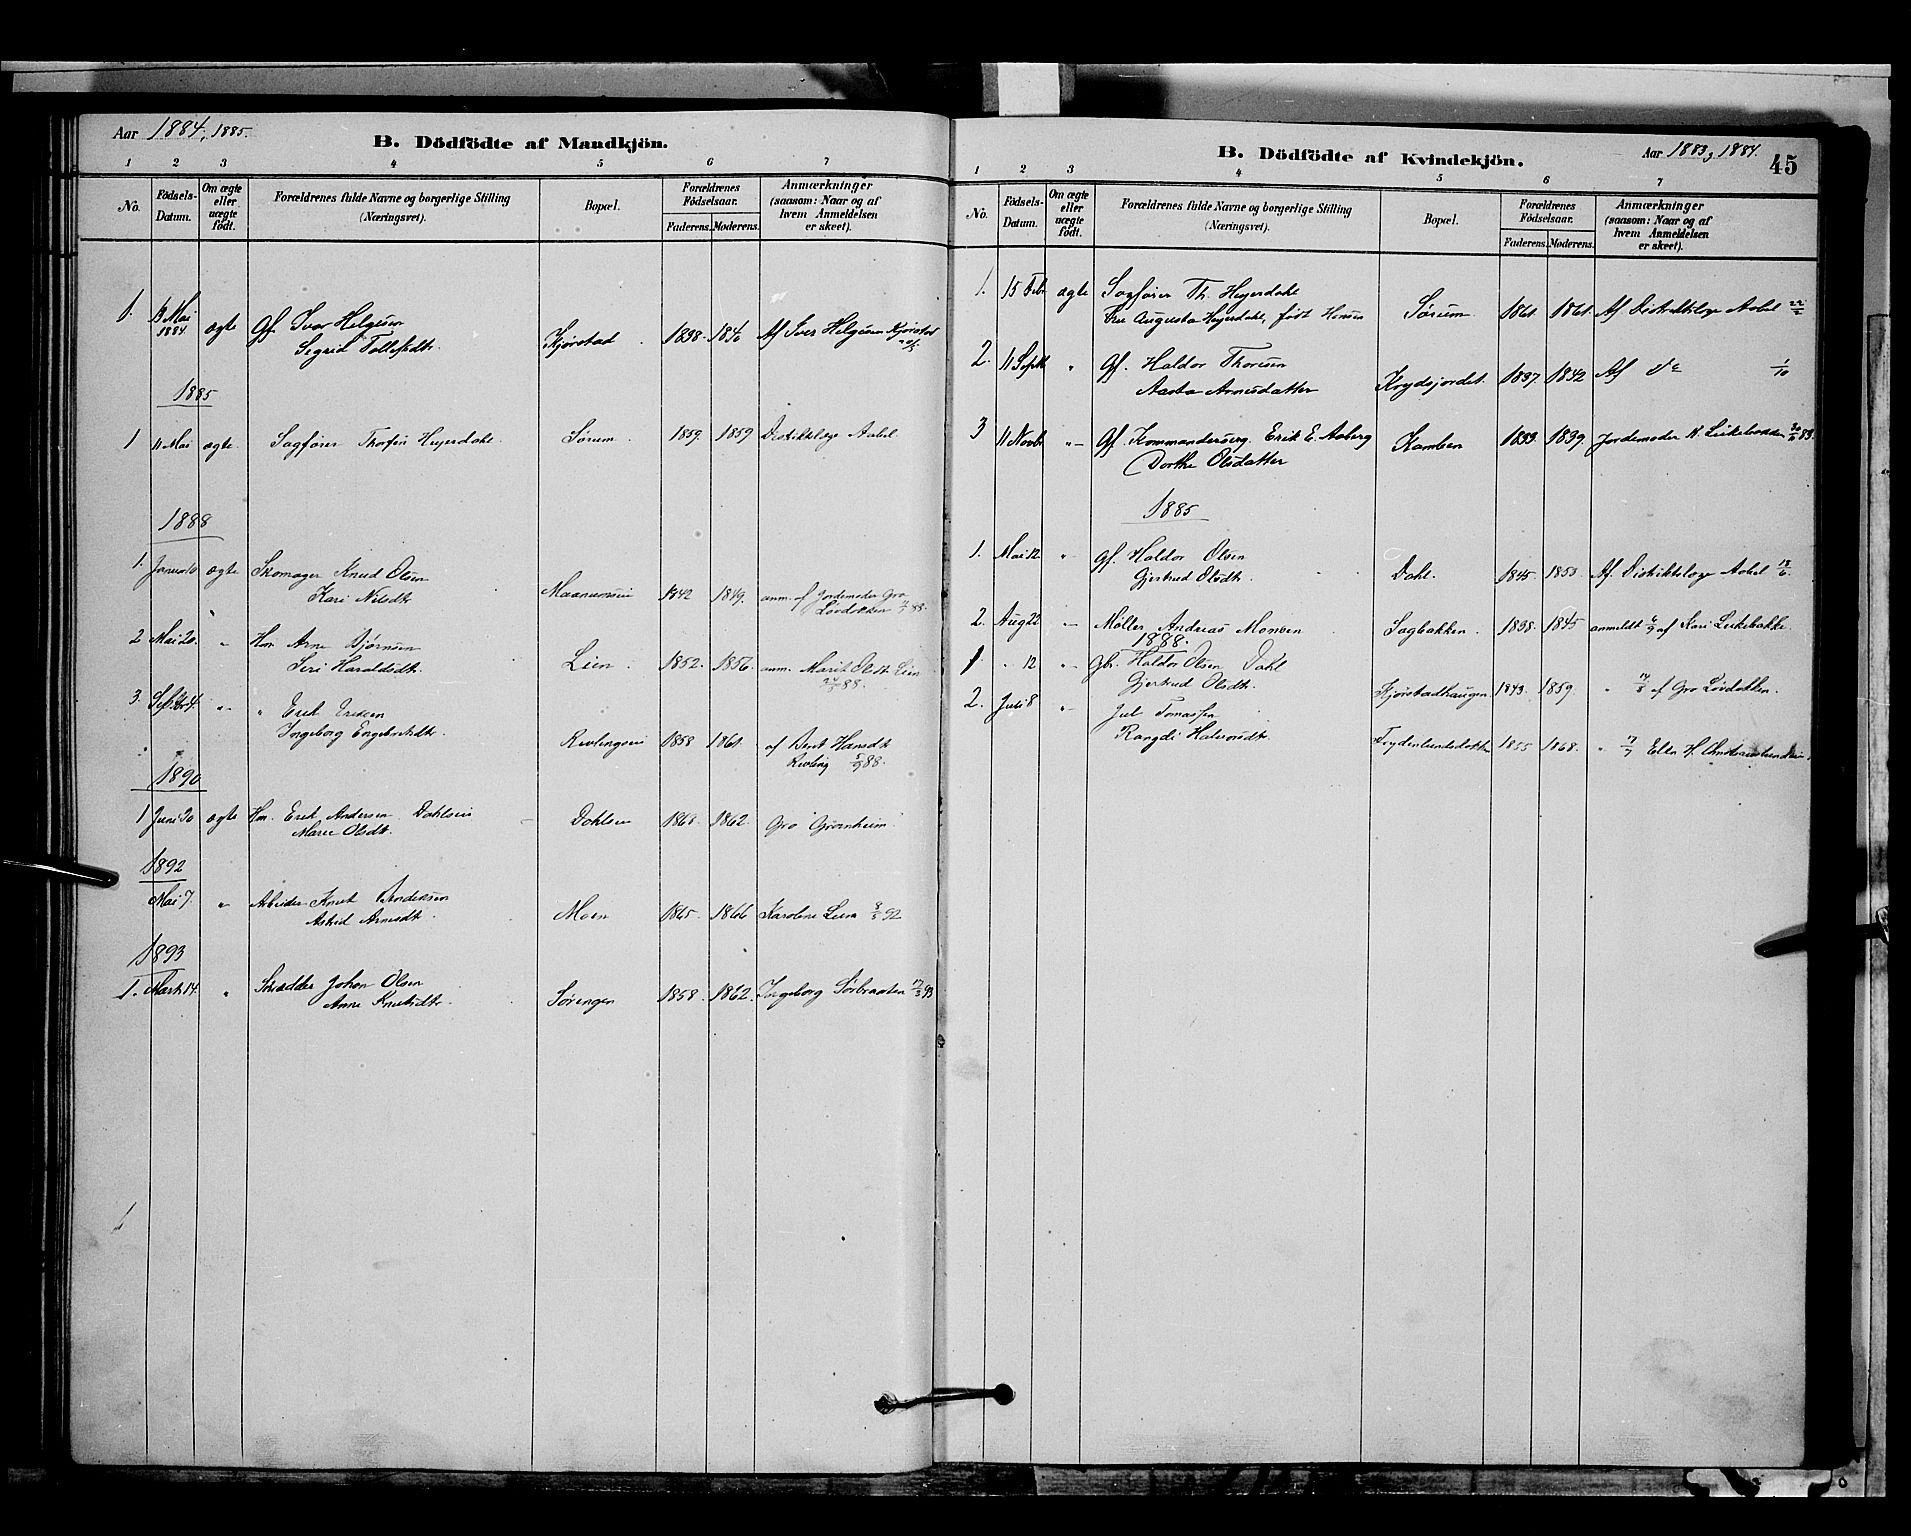 Aar 1884, 1885.
B. Dödfödte af Mandkjön.
1 2 3 4 5 6 7
No. Födsels-Datum. Om ægte eller uægte födt. Forældrenes fulde Navne og borgerlige Stilling (Næringsvei). Bopæl. Forældrenes Födselsaar. Faderens. Moderens. Anmærkninger (saasom: Naar og af hvem Anmeldelsen er skeet).
1. Mai ægte Gf. Ivar Helgesen Kjørstad 1838. 1846 Af Iver Helgesen Kjørstad
1884 Sigrid
1885
1 11 Mai ægte. Sagfører Thorfin Heyerdahl. Sørum. 1859. 1859 Distriktslæge Aabel.
1888
1. Janua 10 ægte Skomager Knud Olsen
Kari Nilsdtr. 1842 1849. anm. af Jordemoder Gro
Lövdokken 88.
2 Mai 20. " Hm. Arne Bjørnsen
Siri Haraldsdtr. Lien. 1852. 1856. anm. Marit Olsdtr. Lien
88.
3. Septbr 4. " " Erik Eriksen
Ingeborg Engebretsdtr. 1858 1861. af Berit Hansdtr.
5/9 88.
1890
1 Juni 20 ægte Hm. Erik Andersen Dahlseie
Marie Olsdtr. Dahlseie 1868. 1862. Gro Grønheim
1892
Mai 7. " Arbeider Knut Andersen
Astrid Arnesdtr. Moen 1865. 1866 Karoline Lien 8/5 92
1893
1. Marts 14. " Skrædder Johan Olsen
Anne Knutsdtr. Sørengen 1858. 1862. Ingeborg Sørbraaten 17/3 93
B. Dödfödte af Kvindekjön.
Aar 1883, 1884. 45
1 2 3 4 5 6 7
No. Födsels-Datum. Om ægte eller uægte födt. Forældrenes fulde Navne og borgerlige Stilling (Næringsvei). Bopæl. Forældrenes Födselsaar. Faderens. Moderens. Anmærkninger (saasom: Naar og af hvem Anmeldelsen er skeet).
1. 15 Febr ægte Sagfører Th. Heyerdahl
Fru Augusta Heyerdahl, født Hansen Sørum. 1861. 1861. Af Distriktslæge Aabel 22/2
2. 11 Septbr " Gf. Haldor Thoresen
Aasta Arnesdatter Krydsjordet. 1837. 1842 Af do 1/10
3 11 Novbr " Gf. Kommandersergt. Erik E. Aaberg
Dorthe Olsdatter Kamben 1833. 1839. Jordemoder K. Leikebakken 83.
1885
1. Mai 12. " Gf. Haldor Olsen
Gjertrud Olsdtr. Dahl. 1845. 1853 Af Distriktslæge Aabel 18/6.
2. Aug 22 " Møller Andreas Monsen Sagbakken. 1838. 1845 anmeldt 6/9 af Kari Leikebakke.
1888.
1 " 12 " Gbr. Haldor Olsen Dahl
Gjertrud Olsdtr. Kjørstadhaugen 1843. 1859. " af Gro Lövdokken.
2. Juli 8 " Jul Tomassen
Rangdi Halvorsdtr. 1855 1868. " 17/7 Ellen H.